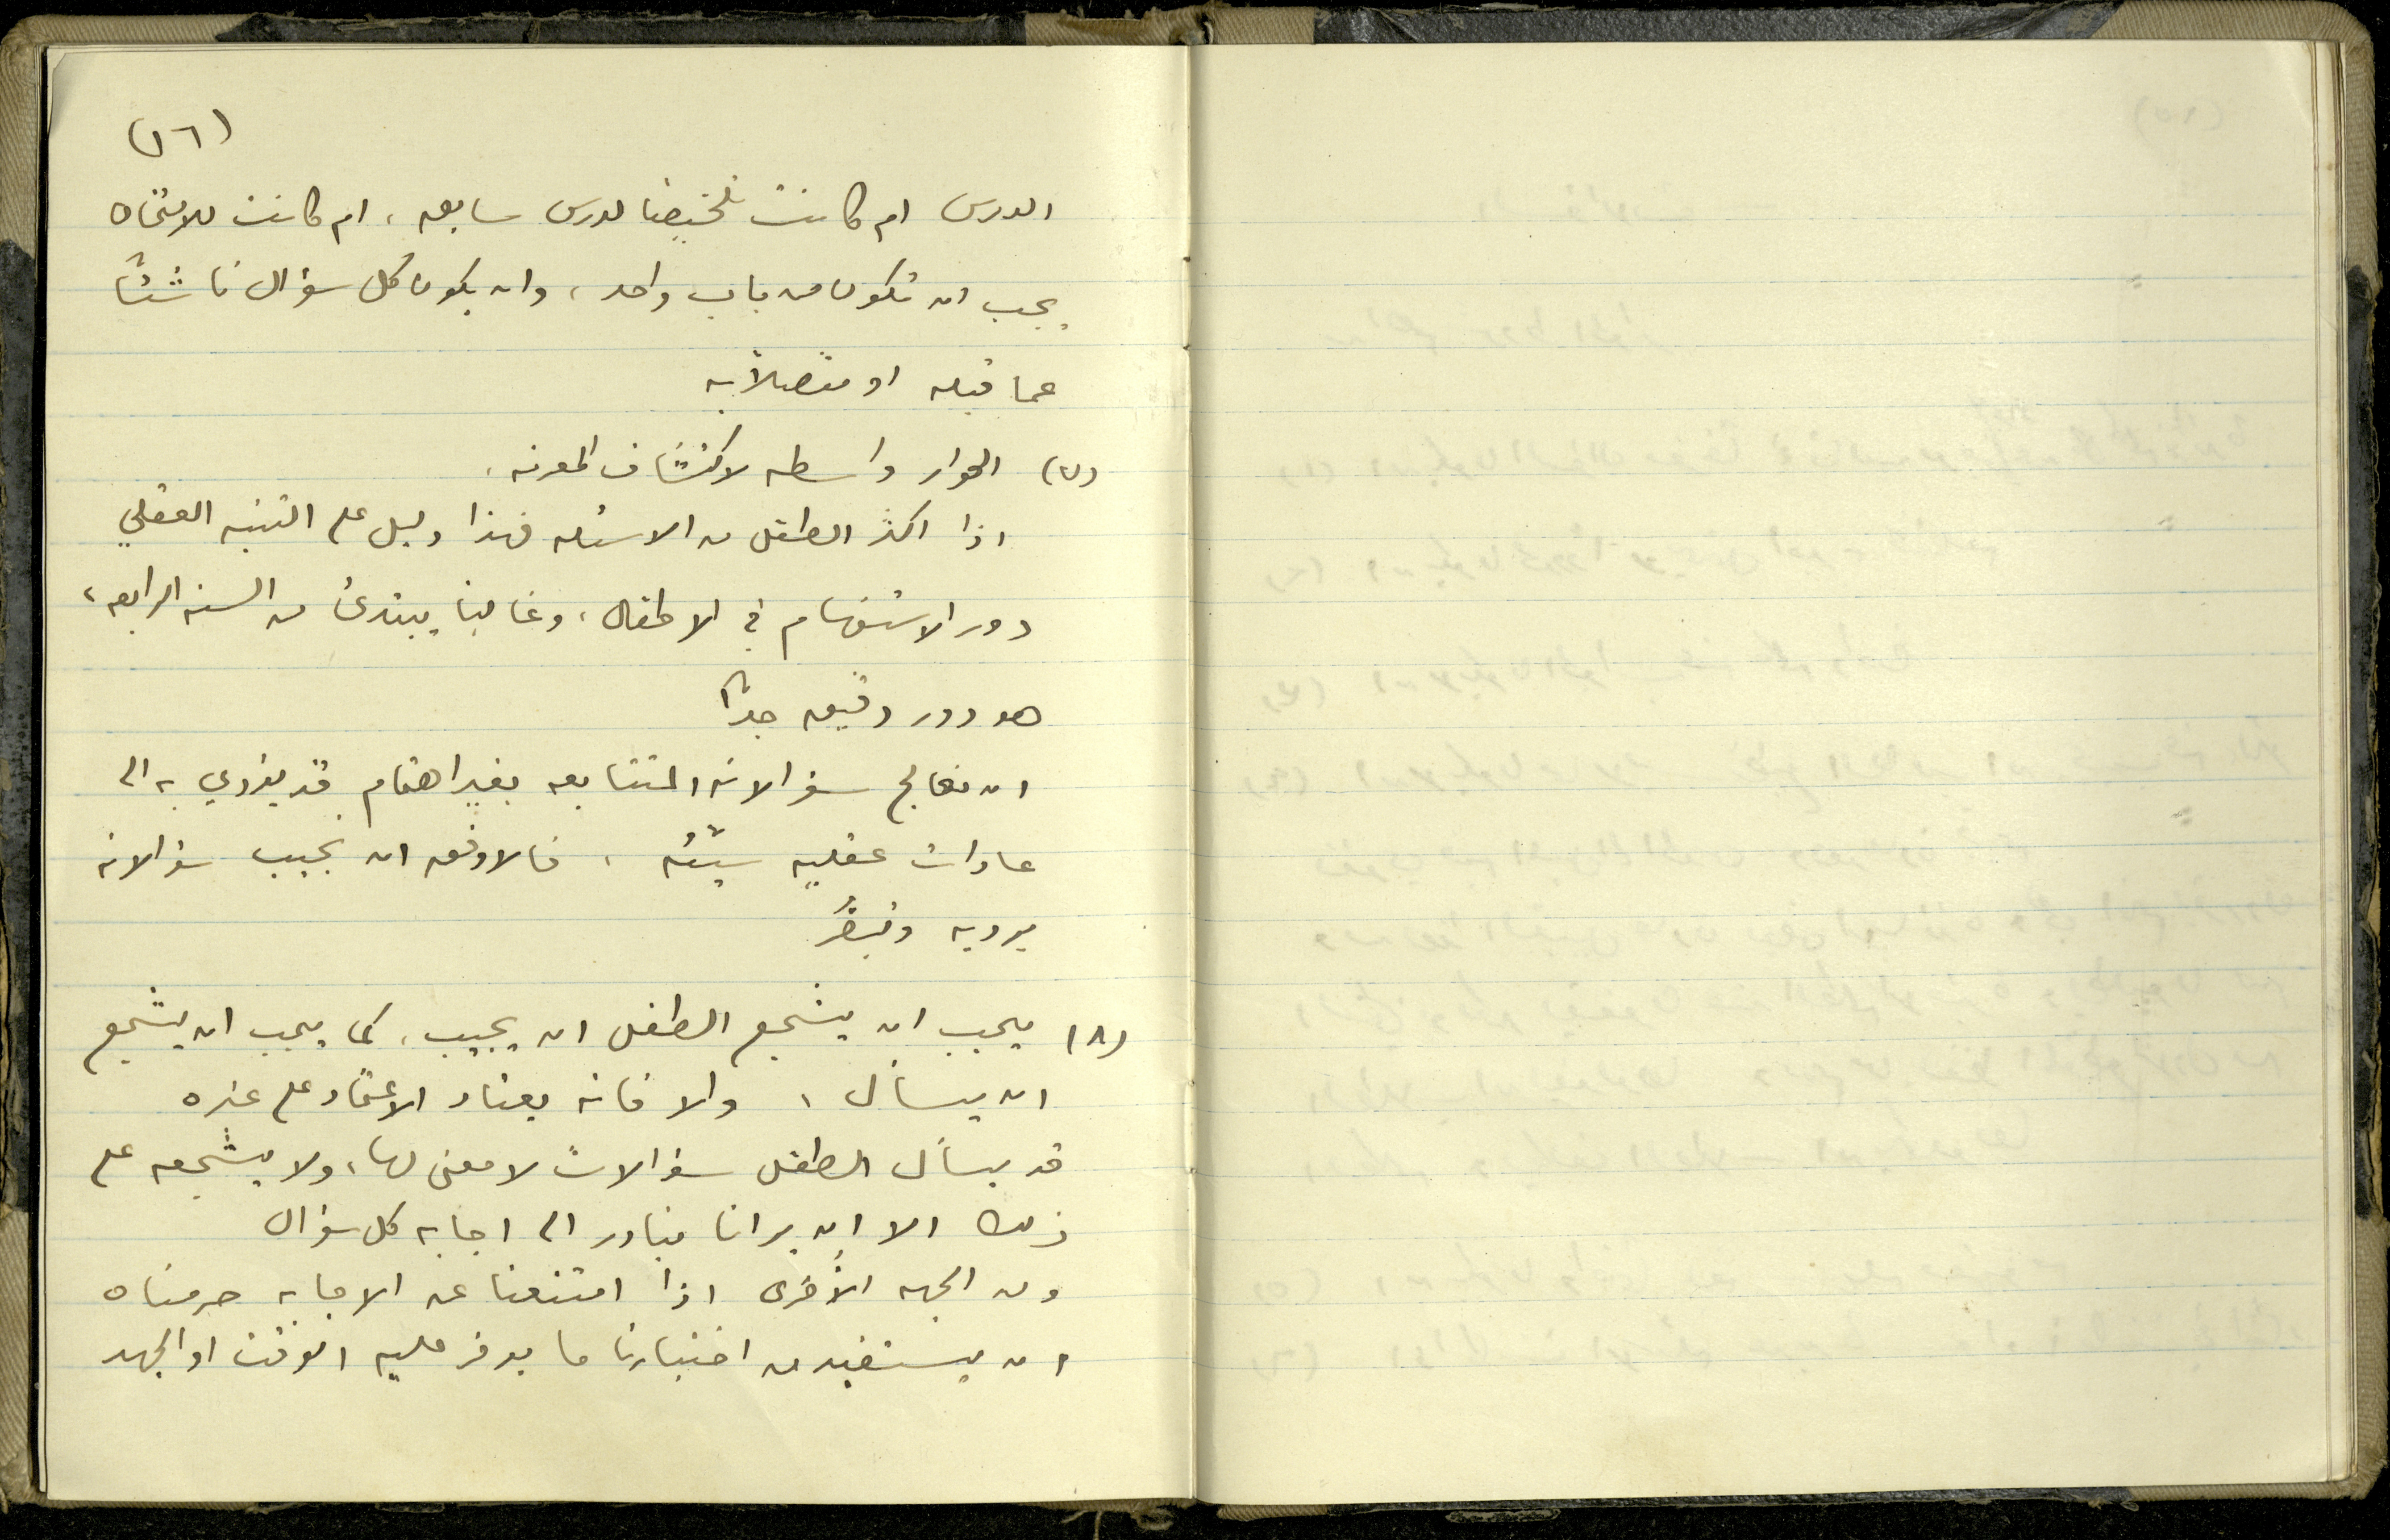 (١٦)
الدرس ام كانت تلخيصًا لدرس سابق، ام كانت للامتحان
يجب ان تكون من باب واحد، وان يكون كل سؤال ناشئًا
عما قبله او متصلاً به
(٧) الحوار واسطه لاكتشاف المعرفه،
اذا اكثر الطفل من الاسئله فهذا دليل على التنبه العقلي
دور الاستفهام في الاطفال، وغالبًا يبتدئ من السنه الرابعه،
هو دور دقيق جدًا
ان نعالج سؤالاته المتتابعه بغير اهتمام قد يؤدي به الى
عادات عقليه سيّئه، فالاوفق ان نجيب سؤالاته
برويه وتبصّر
(٨) يجب ان يشجع الطفل ان يجيب، كما يجب ان يشجع
ان يسأل، والا فانه يعتاد الاعتماد على غيره
قد يسأل الطفل سؤالات لا معنى لها، ولا يشجعه على
ذلك الا ان يرانا نبادر الى اجابه كل سؤال
ومن الجهه الأخرى اذا امتنعنا عن الاجابه حرمناه
ان يستفيد من اختبارنا ما يوفر عليه الوقت او الجهد